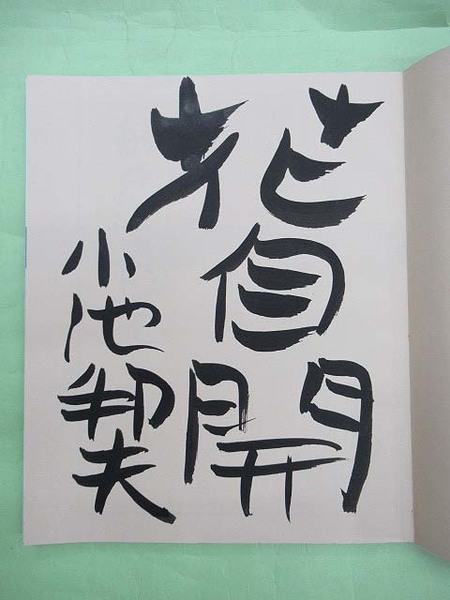 花自開
小池邦夫